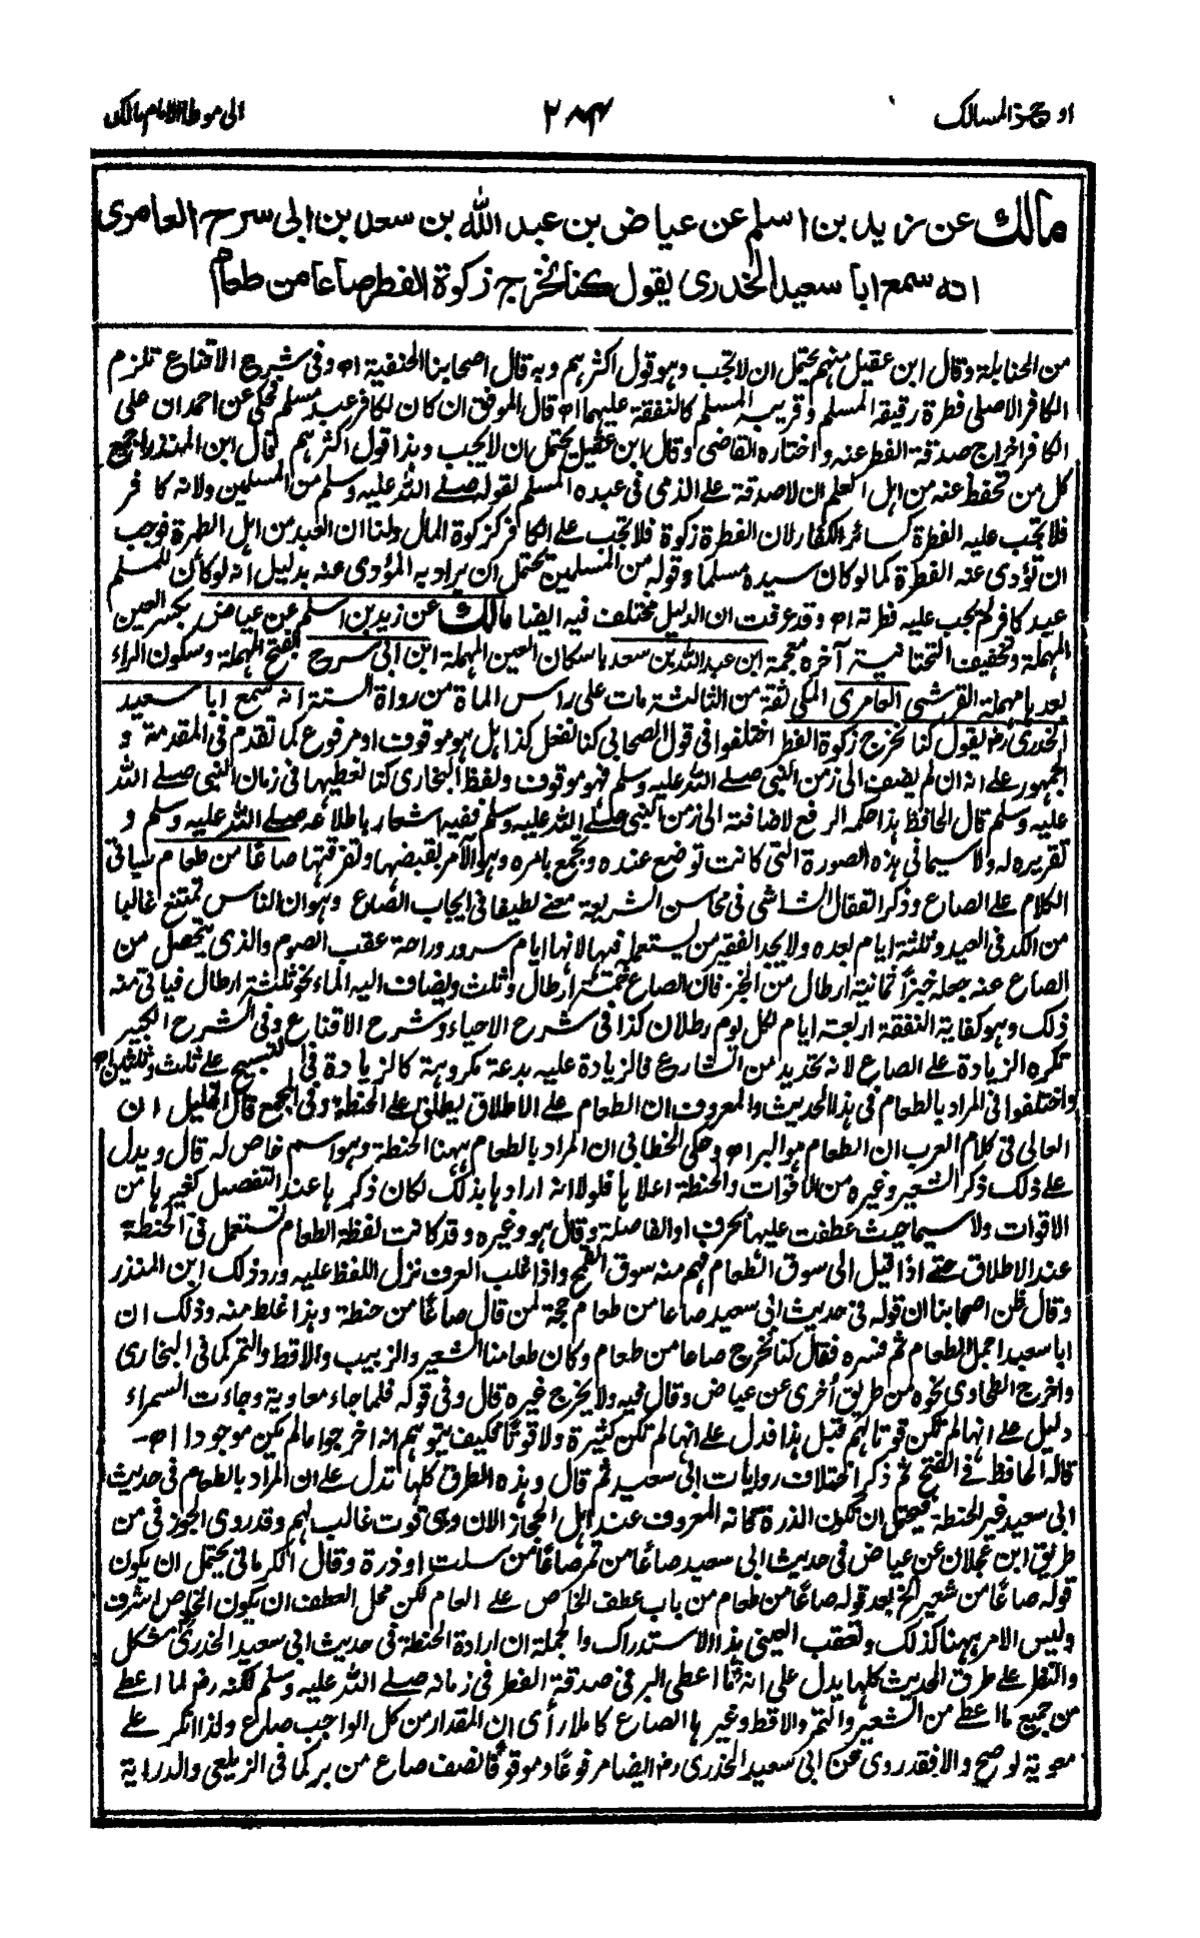 اوجز المسالك ٢٨٤ الى موطا الامام مالك
مالك عن زيد بن اسلم عن عياض بن عبد الله بن سعد بن ابى سرح العامرى
انه سمع ابا سعيد الخدرى يقول كنا نخرج زكوة الفطر صاعا من طعام
من الحنابلة وقال ابن عقيل منهم يحتمل ان لا تجب وهو قول اكثرهم وبه قال اصحابنا الحنفية اھ وفى شرح الاقناع تلزم
الكافر الاصلى فطرة رقيقه المسلم وقريبه المسلم كالنفقة عليهما اھ قال الموفق ان كان لكافر عبد مسلم فحكى عن احمد ان على
الكافر اخراج صدقة الفطر عنه واختاره القاضى وقال ابن عقيل يحتمل ان لا يجب وهذا قول اكثرهم قال ابن المنذر اجمع
كل من نحفظ عنه من اهل العلم ان لا صدقة على الذمى فى عبده المسلم لقوله صلى الله عليه وسلم من المسلمين ولانه كافر
فلا تجب عليه الفطرة كسائر الكفار لان الفطرة زكوة فلا تجب على الكافر كزكوة المال ولنا ان العبد من اهل الطهرة فوجب
ان تؤدى عنه الفطرة كما لو كان سيده مسلما وقوله من المسلمين يحتمل ان يراد به المؤدى عنه بدليل انه لو كان للمسلم
عبد كافر لم يجب عليه فطرته اھ وقد عرفت ان الدليل مختلف فيه ايضا مالك عن زيد بن اسلم عن عياض بكسر العين
المهملة وتخفيف التحتانية آخره معجمة ابن عبد الله بن سعد باسكان العين المهملة ابن ابى سرح بفتح المهملة وسكون الراء
بعدها مهملة القرشى العامرى المكى ثقة من الثالثة مات على راس المأة من رواة الستة انه سمع ابا سعيد
الخدرى رض يقول كنا نخرج زكوة الفطر اختلفوا فى قول الصحابى كنا نفعل كذا هل هو موقوف او مرفوع كما تقدم فى المقدمة و
الجمهور على انه ان لم يضف الى زمن النبى صلى الله عليه وسلم فهو موقوف ولفظ البخارى كنا نعطيها فى زمان النبى صلى الله
عليه وسلم قال الحافظ هذا حكمه الرفع لاضافته الى زمن النبى صلى الله عليه وسلم ففيه اشعار باطلاعه صلى الله عليه وسلم و
تقريره له ولا سيما فى هذه الصورة التى كانت توضع عنده وتجمع بامره وهو الآمر بقبضها وتفرقتها صاعا من طعام سياتى
الكلام على الصاع وذكر القفال الشاشى فى محاسن الشريعة معنى لطيفا فى ايجاب الصاع وهو ان الناس تمتنع غالبا
من الكد فى العيد وثلثة ايام بعده ولا يجد الفقير من يستعمله فيها لانها ايام سرور وراحة عقب الصوم والذى يتحصل من
الصاع عند جعله خبزا ثمانية ارطال من الخبز فان الصاع خمسة ارطال وثلث ويضاف اليه الماء نحو ثلثة ارطال فياتى منه
ذلك وهو كفاية النفقة اربعة ايام لكل يوم رطلان كذا فى شرح الاحياء وشرح الاقناع وفى الشرح الكبير
تكره الزيادة على الصاع لانه تحديد من الشارع فالزيادة عليه بدعة مكروهة كالزيادة فى التسبيح على ثلث وثلثين اھ
واختلفوا فى المراد بالطعام فى هذا الحديث والمعروف ان الطعام على الاطلاق يطلق على الحنطة وفى المجمع قال الخليل ان
العالى فى كلام العرب ان الطعام هو البر اھ وحكى الخطابى ان المراد بالطعام ههنا الحنطة وهو اسم خاص له قال ويدل
على ذلك ذكر الشعير وغيره من الاقوات والحنطة اعلاها فلولا انه ارادها بذلك لكان ذكرها عند التفصيل كغيرها من
الاقوات ولا سيما حيث عطفت عليها بحرف او الفاصلة وقال هو وغيره وقد كانت لفظة الطعام تستعمل فى الحنطة
عند الاطلاق حتى اذا قيل الى سوق الطعام فهم منه سوق القمح واذا غلب العرف نزل اللفظ عليه ورد ذلك ابن المنذر
وقال ظن اصحابنا ان قوله فى حديث ابى سعيد صاعا من طعام حجة لمن قال صاعا من حنطة وهذا غلط منه وذلك ان
ابا سعيد اجمل الطعام ثم فسره فقال كنا نخرج صاعا من طعام وكان طعامنا الشعير والزبيب والاقط والتمر كما فى البخارى
واخرج الطحاوى نحوه من طريق أخرى عن عياض وقال فيه ولا يخرج غيره قال وفى قوله فلما جاء معاوية وجاءت السمراء
دليل على انها لم تكن قوتا لهم قبل هذا فدل على انها لم تكن كثيرة ولا قوتا فكيف يتوهم انه اخرجوا ما لم يكن موجودا اھ
قاله الحافظ فى الفتح ثم ذكر اختلاف روايات ابى سعيد ثم قال وهذه الطرق كلها تدل على ان المراد بالطعام فى حديث
ابى سعيد غير الحنطة فيحتمل ان تكون الذرة فانه المعروف عند اهل الحجاز الان وهى قوت غالب لهم وقد روى الجوزقى من
طريق ابن عجلان عن عياض فى حديث ابى سعيد صاعا من تمر صاعا من سلت او ذرة وقال الكرمانى يحتمل ان يكون
قوله صاعا من شعير الخ بعد قوله صاعا من طعام من باب عطف الخاص على العام لكن محل العطف ان يكون الخاص اشرف
وليس الامر ههنا كذلك وتعقب العينى هذا الاستدراك والجملة ان ارادة الحنطة فى حديث ابى سعيد الخدرى مشكل
والنظر على طرق الحديث كلها يدل على انه ما اعطى البر فى صدقة الفطر فى زمانه صلى الله عليه وسلم لكنه رض لما اعطى
من جميع ما اعطى من الشعير والتمر والاقط وغيرها الصاع كاملا رأى ان المقدار من كل الواجب صاع ولذا انكر على
معوية لو صح والا فقد روى عن ابى سعيد الخدرى رض ايضا مرفوعا وموقوفا نصف صاع من بر كما فى الزيلعى والدراية